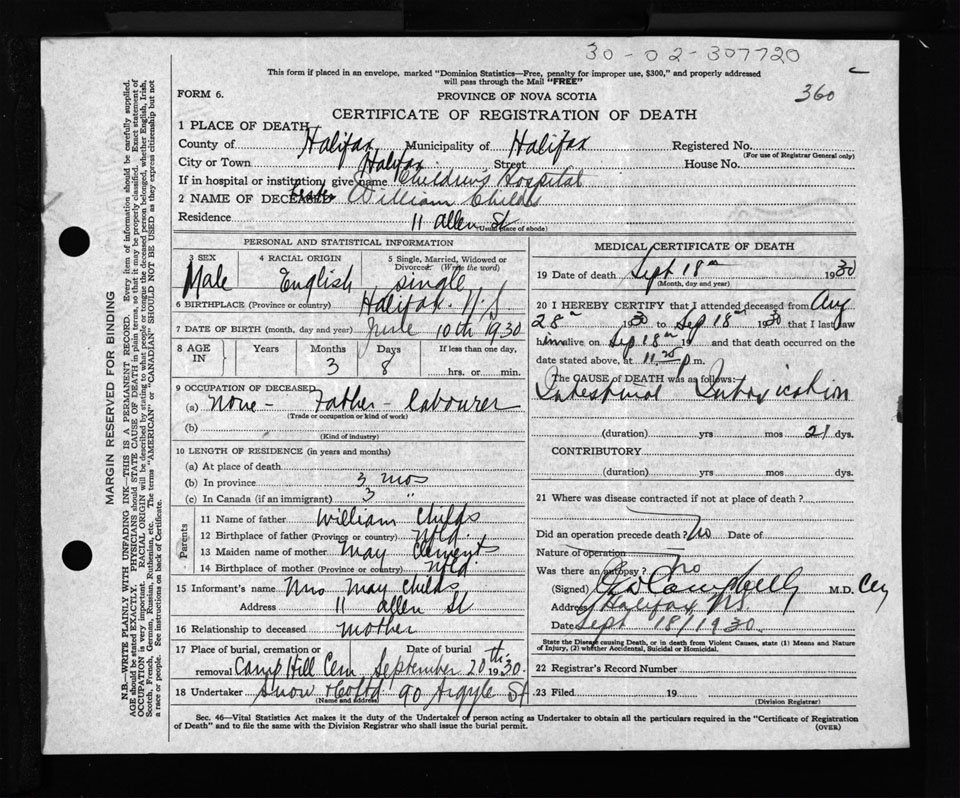 30-02-307720
This form if placed in an envelope, marked "Dominion Statistics—Free, penalty for improper use, $300," and properly addressed
will pass through the Mail "FREE"
FORM 6.
PROVINCE OF NOVA SCOTIA
360
CERTIFICATE OF REGISTRATION OF DEATH
1 PLACE OF DEATH
County of Halifax Municipality of Halifax Registered No.
(For use of Registrar General only)
City or Town Halifax Street House No.
If in hospital or institution, give name Children's Hospital
2 NAME OF DECEASED William Childs
Residence 11 Allen St
(Usual place of abode)
PERSONAL AND STATISTICAL INFORMATION
3 SEX 4 RACIAL ORIGIN 5 Single, Married, Widowed or
Divorced: (Write the word)
Male English Single
6 BIRTHPLACE (Province or country) Halifax. N.S.
7 DATE OF BIRTH (month, day and year) June 10th 1930
8 AGE IN Years Months Days If less than one day,
3 8 hrs. or min.
9 OCCUPATION OF DECEASED
(a) None - Father - Labourer
(Trade or occupation or kind of work)
(b)
(Kind of industry)
10 LENGTH OF RESIDENCE (in years and months)
(a) At place of death
(b) In province 3 mos
(c) In Canada (if an immigrant) 3 "
Parents
11 Name of father William Childs
12 Birthplace of father (Province or country) Nfld.
13 Maiden name of mother May Clements
14 Birthplace of mother (Province or country) Nfld.
15 Informant's name Mrs May Childs
Address 11 Allen St
16 Relationship to deceased mother
17 Place of burial, cremation or Date of burial
removal Camp Hill Cem September 20th 1930.
18 Undertaker Snow & Co Ltd 90 Argyle St
(Name and address)
MEDICAL CERTIFICATE OF DEATH
19 Date of death Sept 18th 1930
(Month, day and year)
20 I HEREBY CERTIFY that I attended deceased from Aug
28th 1930 to Sep 18th 1930 that I last saw
him alive on Sep 18th 19 and that death occurred on the
date stated above, at 11 p m.
The CAUSE OF DEATH was as follows:
Intestinal Intoxication
(duration) yrs mos 21 dys.
CONTRIBUTORY
(duration) yrs mos dys.
21 Where was disease contracted if not at place of death?
Did an operation precede death? No Date of
Nature of operation
Was there an autopsy? No
(Signed) Campbell M.D.
Address Halifax N.S.
Date Sept 18/1930.
State the Disease causing Death, or in death from Violent Causes, state (1) Means and Nature
of Injury, (2) whether Accidental, Suicidal or Homicidal.
22 Registrar's Record Number
23 Filed 19
(Division Registrar)
Sec. 46—Vital Statistics Act makes it the duty of the Undertaker or person acting as Undertaker to obtain all the particulars required in the "Certificate of Registration
of Death" and to file the same with the Division Registrar who shall issue the burial permit.
(OVER)
MARGIN RESERVED FOR BINDING
N.B.—WRITE PLAINLY WITH UNFADING INK—THIS IS A PERMANENT RECORD. Every item of information should be carefully supplied.
AGE should be stated EXACTLY. PHYSICIANS should STATE CAUSE OF DEATH in plain terms, so that it may be properly classified. Exact statement of
OCCUPATION is very important. RACIAL ORIGIN will be described by stating to what people or tongue the deceased person belonged, whether English, Irish,
Scotch, French, German, Russian, Ruthenian, etc. The terms "AMERICAN" or "CANADIAN" SHOULD NOT BE USED as they express citizenship but not
a race or people. See instructions on back of Certificate.